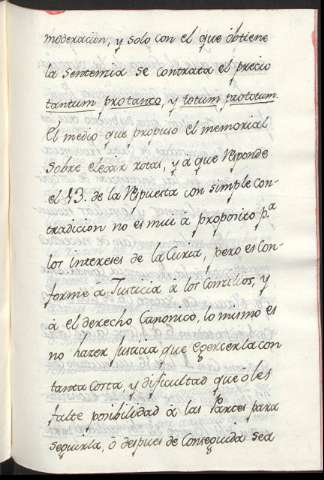 moderacion, y solo con el que obtiene
la sentencia se contrata el precio
tantum pro tanto, y totum pro totum.
El medio que propuso el memorial
sobre elexir rotas, y á que responde
el §3. de la Rpuesta con simple con-
tradicion no es mui á proposito pª
los intereses de la Curia, pero es con-
forme á Justicia á los Concilios, y
á el derecho Canonico, lo mismo es
no hazer Justicia que exercerla con
tanta costa, y dificultad que ó les
falte posibilidad á las Partes para
seguirla, ó despues de conseguida sea